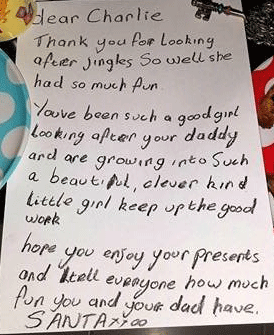 dear Charlie
Thank you for Looking
after jingles So well she
had so much fun.
Youve been such a good girl
Looking after your daddy
and are growing into Such
a beautiful, clever kind
little girl keep up the good
work
hope you enjoy your presents
and tell everyone how much
fun you and your dad have.
SANTAxxoo